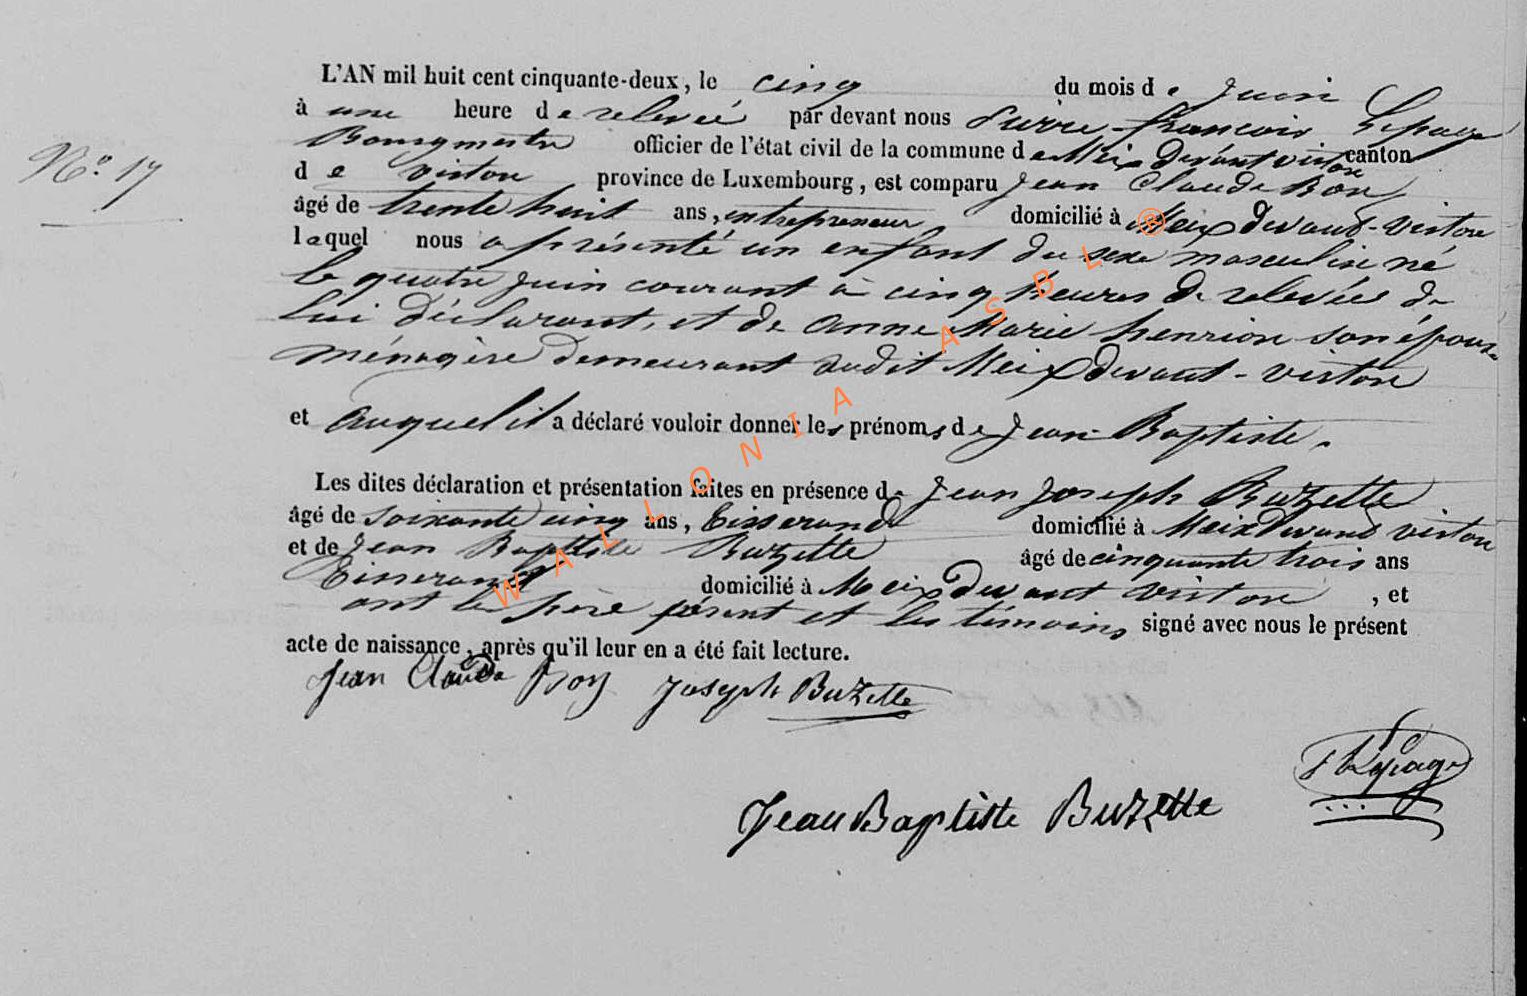 L'AN mil huit cent cinquante-deux, le cinq du mois de Juin
à une heure de relevée par devant nous Pierre-françois Lepage
Bourgmestre officier de l'état civil de la commune de Meix devant virton canton
N.º 17
de virton province de Luxembourg, est comparu Jean Claude
âgé de trente huit ans, entrepreneur domicilié à Meix devant-virton
lequel nous a présenté un enfant du sexe masculin né
le quatre juin courant à cinq heures de relevées de
lui déclarant, et de anne Marie henrion son épouse
ménagère demeurant audit Meix devant-virton
et auquel il a déclaré vouloir donner les prénoms de Jean-Baptiste.
Les dites déclaration et présentation faites en présence de Jean Joseph Buzette
âgé de soixante cinq ans, tisserand domicilié à Meix devant virton
et de Jean Baptiste Buzette âgé de cinquante trois ans
tisserand domicilié à Meix devant virton, et
ont le père et les témoins signé avec nous le présent
acte de naissance, après qu'il leur en a été fait lecture.
Jean Claude Joseph Buzette
Lepage
Jean Baptiste Buzette
WALLONIA ASBL ®